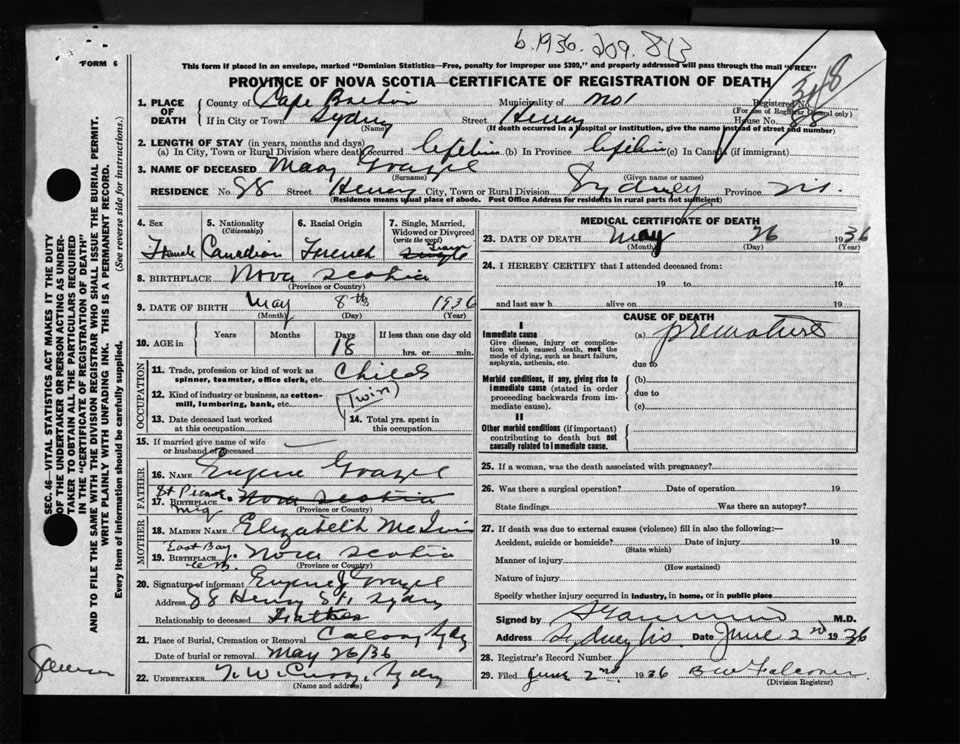 b.1936.209.813
FORM 6
This form if placed in an envelope, marked "Dominion Statistics—Free, penalty for improper use $300," and properly addressed will pass through the mail "FREE"
PROVINCE OF NOVA SCOTIA—CERTIFICATE OF REGISTRATION OF DEATH
348
1. PLACE OF DEATH { County of Cape Breton Municipality of No 1 Registered No.
(For use of Registrar General only)
If in City or Town Sydney Street Henry House No. 88
(Name) (If death occurred in a hospital or institution, give the name instead of street and number)
2. LENGTH OF STAY (in years, months and days)
(a) In City, Town or Rural Division where death occurred lifetime (b) In Province lifetime (c) In Canada (if immigrant)
3. NAME OF DECEASED Mary
(Surname) (Given name or names)
RESIDENCE No. 88 Street Henry City, Town or Rural Division Sydney Province N.S.
(Residence means usual place of abode. Post Office Address for residents in rural parts not sufficient)
4. Sex 5. Nationality (Citizenship) 6. Racial Origin 7. Single, Married, Widowed or Divorced (write the word)
Female Canadian French Single
8. BIRTHPLACE Nova Scotia
(Province or Country)
9. DATE OF BIRTH May 8th 1936
(Month) (Day) (Year)
10. AGE in { Years Months Days If less than one day old
18 hrs. or min.
OCCUPATION
11. Trade, profession or kind of work as spinner, teamster, office clerk, etc. Child
12. Kind of industry or business, as cotton-mill, lumbering, bank, etc. (Twin)
13. Date deceased last worked at this occupation 14. Total yrs. spent in this occupation
15. If married give name of wife or husband of deceased —
FATHER
16. NAME Eugene
St Pierre Miq
17. BIRTHPLACE Nova Scotia
(Province or Country)
MOTHER
18. MAIDEN NAME Elizabeth
East Bay
19. BIRTHPLACE Nova Scotia
(Province or Country)
20. Signature of informant Eugene J
Address 88 Henry St, Sydney
Relationship to deceased Father
21. Place of Burial, Cremation or Removal Calvary, Sydney
Date of burial or removal May 26/36
22. UNDERTAKER Sydney
(Name and address)
MEDICAL CERTIFICATE OF DEATH
23. DATE OF DEATH May 26 1936
(Month) (Day) (Year)
24. I HEREBY CERTIFY that I attended deceased from:
19 to 19
and last saw h alive on 19
CAUSE OF DEATH
I
Immediate cause (a) premature
Give disease, injury or complication which caused death, not the mode of dying, such as heart failure, asphyxia, asthenia, etc.
due to
Morbid conditions, if any, giving rise to immediate cause (stated in order proceeding backwards from immediate cause).
(b)
due to
(c)
II
Other morbid conditions (if important) contributing to death but not causally related to immediate cause.
25. If a woman, was the death associated with pregnancy?
26. Was there a surgical operation? Date of operation 19
State findings Was there an autopsy?
27. If death was due to external causes (violence) fill in also the following:—
Accident, suicide or homicide? Date of injury 19
(State which)
Manner of injury
(How sustained)
Nature of injury
Specify whether injury occurred in industry, in home, or in public place
Signed by M.D.
Address Sydney NS Date June 2nd 1936
28. Registrar's Record Number
29. Filed June 2nd 1936 B W Falconer
(Division Registrar)
SEC. 46—VITAL STATISTICS ACT MAKES IT THE DUTY
OF THE UNDERTAKER OR PERSON ACTING AS UNDER-
TAKER TO OBTAIN ALL THE PARTICULARS REQUIRED
IN THE "CERTIFICATE OF REGISTRATION OF DEATH"
AND TO FILE THE SAME WITH THE DIVISION REGISTRAR WHO SHALL ISSUE THE BURIAL PERMIT.
WRITE PLAINLY WITH UNFADING INK. THIS IS A PERMANENT RECORD.
Every item of information should be carefully supplied. (See reverse side for instructions.)